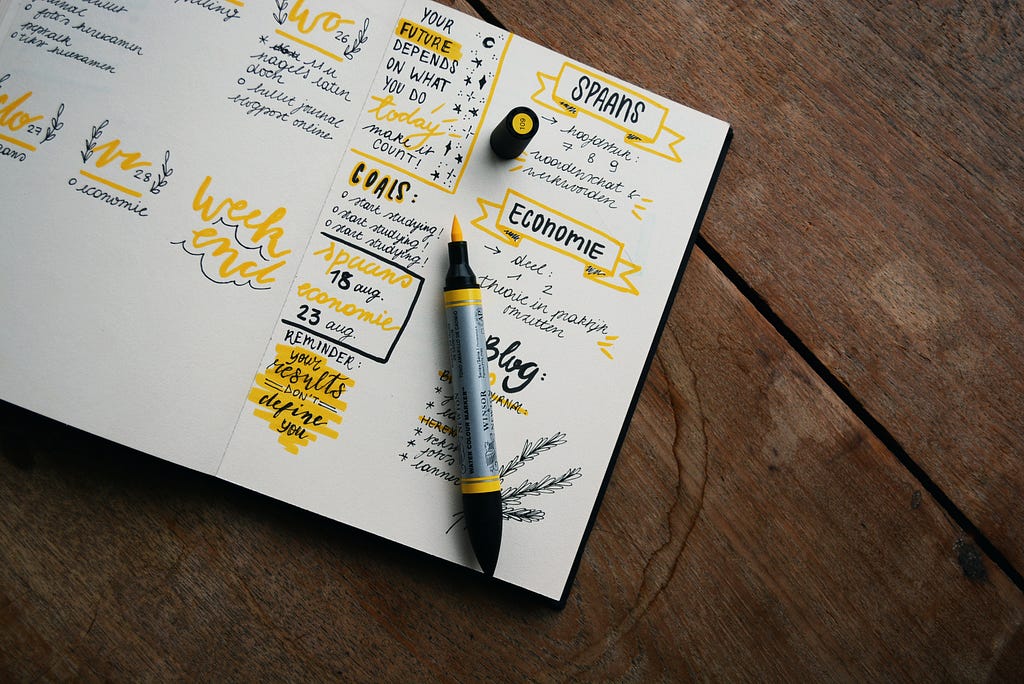 bullet
o fotos herexamen
peptalk
o tekst herexamen
do 27
wo 26
* nagels laten
doen
o bullet journal
blogpost online
vr 28
o economie
week
end
YOUR
FUTURE
DEPENDS
ON WHAT
YOU DO
today
make it
COUNT!
GOALS:
o start studying!
o start studying!
o start studying!
spaans
18 aug.
economie
23 aug.
REMINDER:
your
results
DON'T
define
you
109
SPAANS
→ hoofdstuk:
7 8 9
woordenschat &
werkwoorden
ECONOMIE
→ deel:
1 2
theorie in praktijk
omzetten
Blog:
WATER COLOUR MARKER
WINSOR